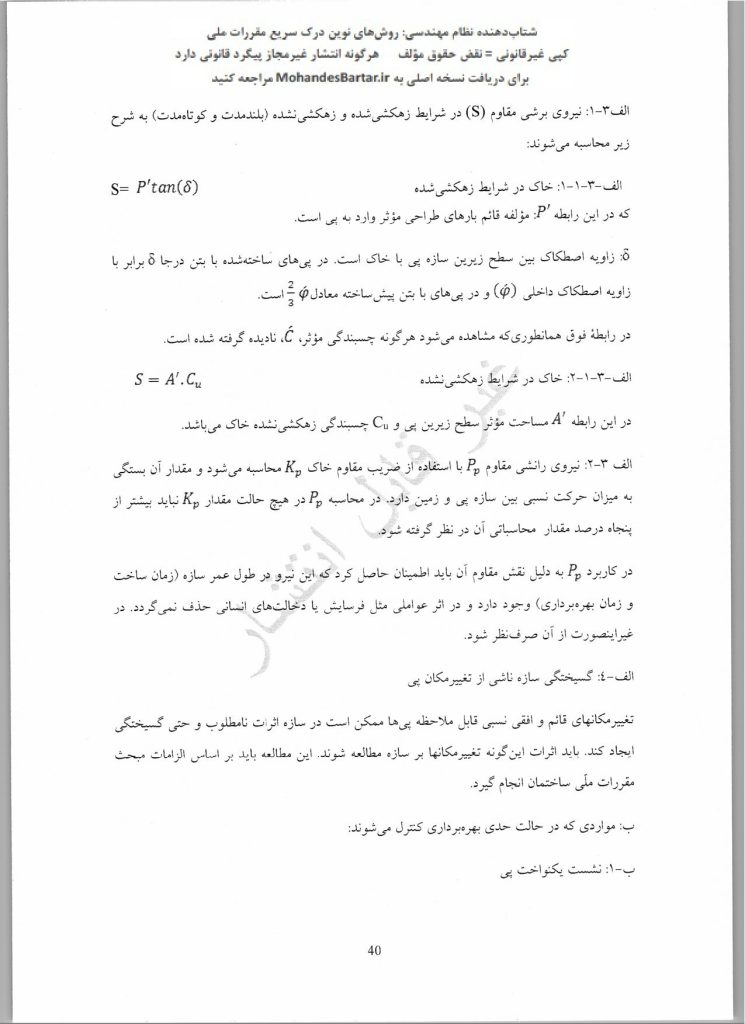 شتاب‌دهنده نظام مهندسی: روش‌های نوین درک سریع مقررات ملی
کپی غیرقانونی = نقض حقوق مؤلف هرگونه انتشار غیرمجاز پیگرد قانونی دارد
برای دریافت نسخه اصلی به MohandesBartar.ir مراجعه کنید
الف۳-۱: نیروی برشی مقاوم (S) در شرایط زهکشی‌شده و زهکشی‌نشده (بلندمدت و کوتاه‌مدت) به شرح
زیر محاسبه می‌شوند:
الف-۳-۱-۱: خاک در شرایط زهکشی‌شده S= P'tan(δ)
که در این رابطه P': مؤلفه قائم بارهای طراحی مؤثر وارد به پی است.
δ: زاویه اصطکاک بین سطح زیرین سازه پی با خاک است. در پی‌های ساخته‌شده با بتن درجا δ برابر با
زاویه اصطکاک داخلی (φ́) و در پی‌های با بتن پیش‌ساخته معادل 2/3 φ́ است.
در رابطهٔ فوق همانطوری‌که مشاهده می‌شود هرگونه چسبندگی مؤثر، Ć، نادیده گرفته شده است.
الف-۳-۱-۲: خاک در شرایط زهکشی‌نشده S = A'.Cu
در این رابطه A' مساحت مؤثر سطح زیرین پی و Cu چسبندگی زهکشی‌نشده خاک می‌باشد.
الف ۳-۲: نیروی رانشی مقاوم Pp با استفاده از ضریب مقاوم خاک Kp محاسبه می‌شود و مقدار آن بستگی
به میزان حرکت نسبی بین سازه پی و زمین دارد. در محاسبه Pp در هیچ حالت مقدار Kp نباید بیشتر از
پنجاه درصد مقدار محاسباتی آن در نظر گرفته شود.
در کاربرد Pp به دلیل نقش مقاوم آن باید اطمینان حاصل کرد که این نیرو در طول عمر سازه (زمان ساخت
و زمان بهره‌برداری) وجود دارد و در اثر عواملی مثل فرسایش یا دخالت‌های انسانی حذف نمی‌گردد. در
غیراینصورت از آن صرف‌نظر شود.
الف-٤: گسیختگی سازه ناشی از تغییرمکان پی
تغییرمکانهای قائم و افقی نسبی قابل ملاحظه پی‌ها ممکن است در سازه اثرات نامطلوب و حتی گسیختگی
ایجاد کند. باید اثرات این‌گونه تغییرمکانها بر سازه مطالعه شوند. این مطالعه باید بر اساس الزامات مبحث
مقررات ملّی ساختمان انجام گیرد.
ب: مواردی که در حالت حدی بهره‌برداری کنترل می‌شوند:
ب-۱: نشست یکنواخت پی
غیر قابل انتشار
40